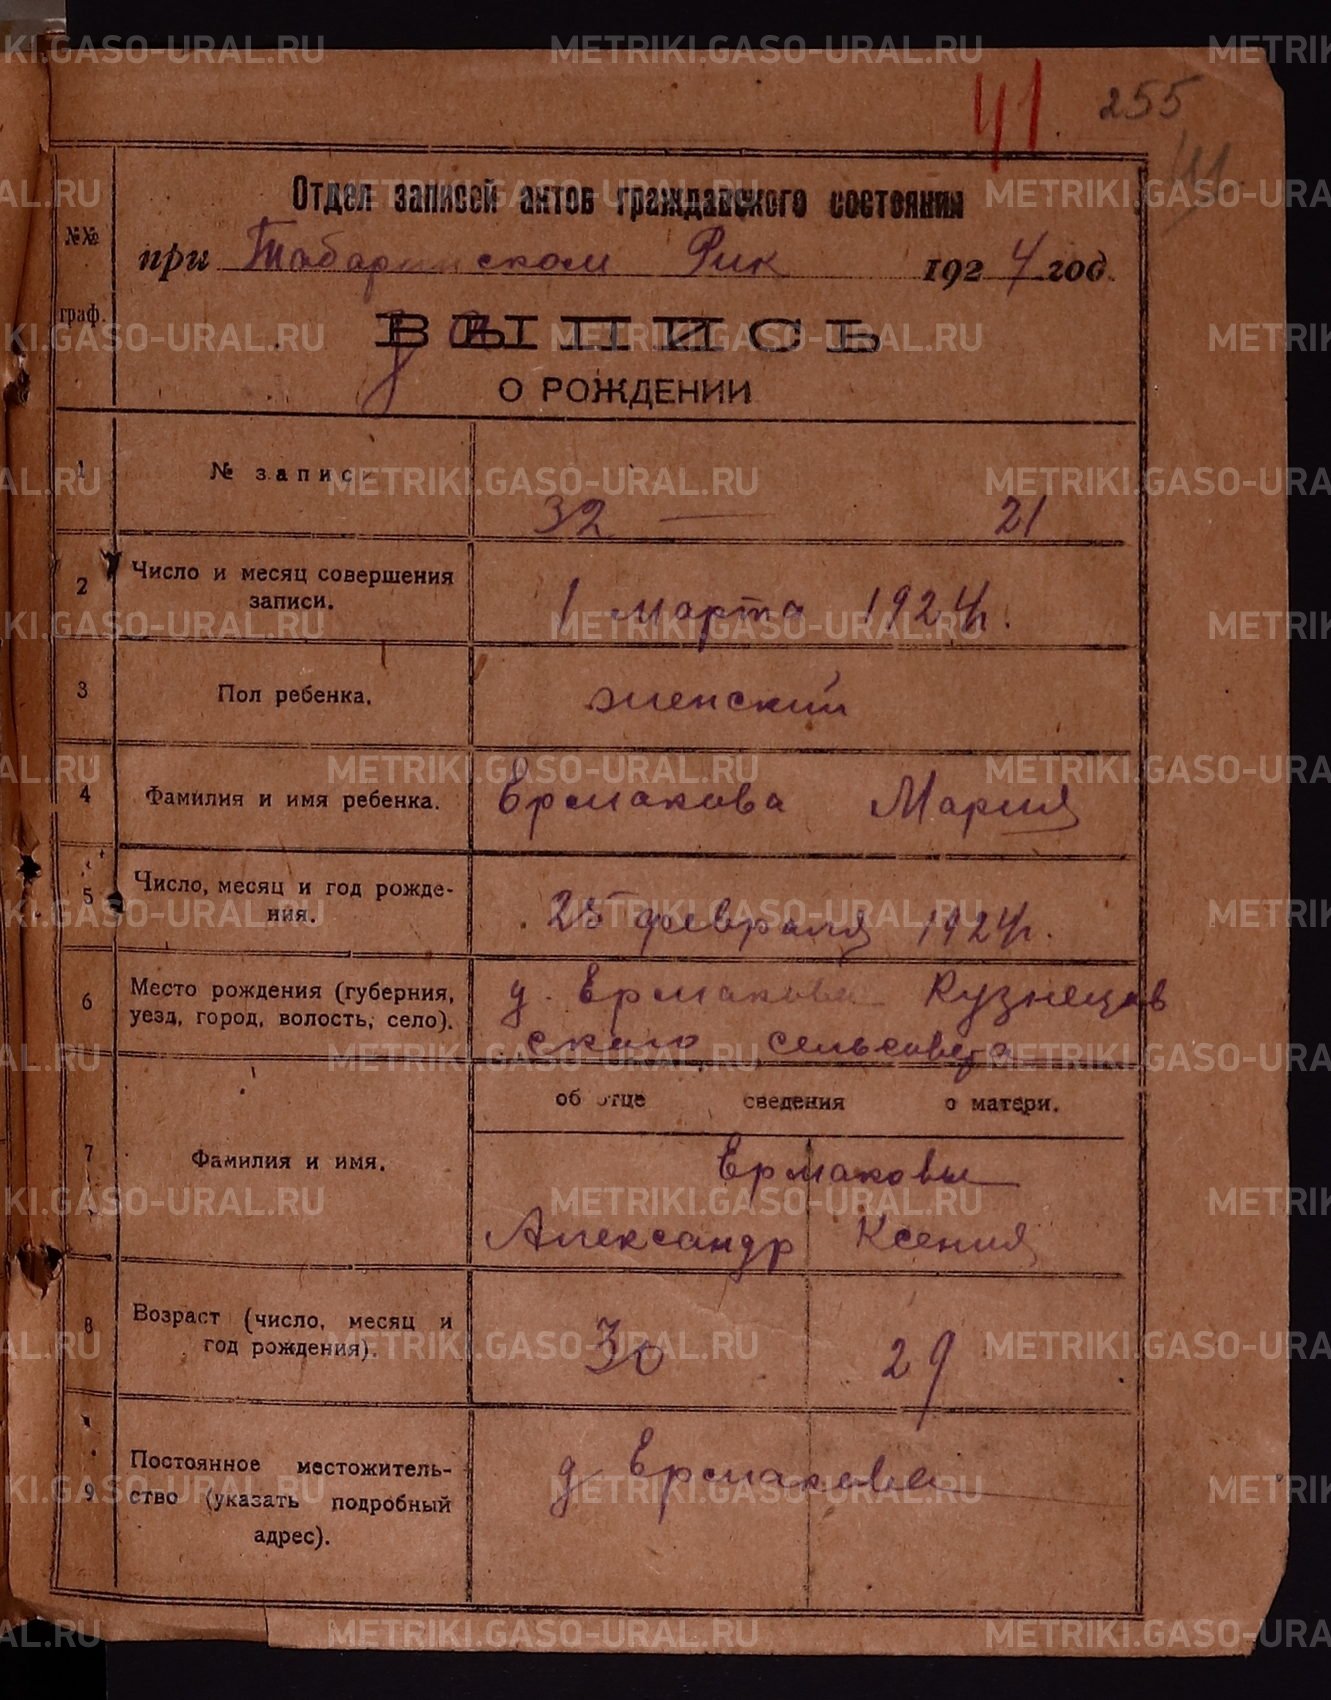 41. 255
41
Отдел записей актов гражданского состояния
№№ граф.
при Табаринском Рик 1924 год.
ВЫПИСЬ
О РОЖДЕНИИ
1 № записи 32 — 21
2 Число и месяц совершения записи. 1 марта 1924 г.
3 Пол ребенка. женский
4 Фамилия и имя ребенка. Ермакова Мария
5 Число, месяц и год рожде-
ния. 25 февраля 1924 г.
6 Место рождения (губерния, д. Ермакова Кузнецов
уезд, город, волость, село). ского сельсовета
об отце сведения о матери.
7 Фамилия и имя. Ермаковы
Александр Ксения
8 Возраст (число, месяц и
год рождения). 30 29
9 Постоянное местожитель-
ство (указать подробный
адрес). д Ермакова
METRIKI.GASO-URAL.RU